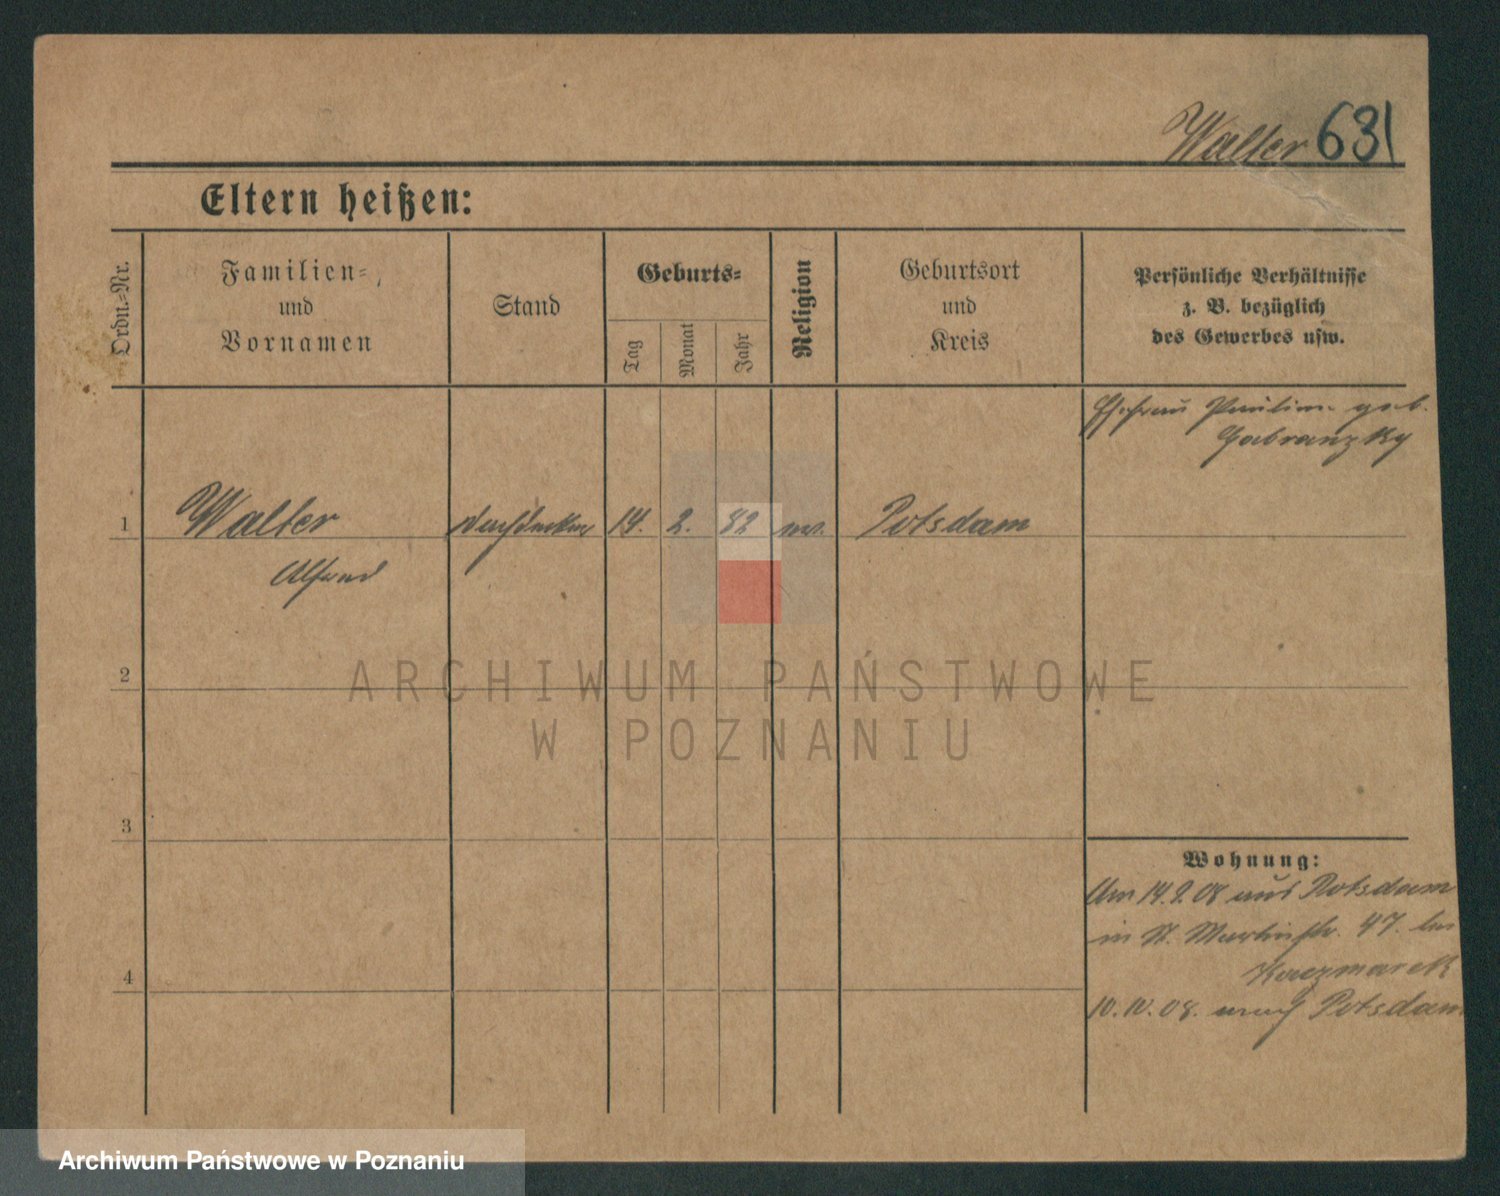 Walter 631
Eltern heißen:
Ordn.-Nr.
Familien-
und
Vornamen
Stand
Geburts-
Tag
Monat
Jahr
Religion
Geburtsort
und
Kreis
Persönliche Verhältnisse
z. B. bezüglich
des Gewerbes usw.
Ehefrau Pauline geb.
Gabranzky
1 Walter Dachdecker 14. 2. 82 ev. Potsdam
Alfred
2
3
4
Wohnung:
Am 14.9.08 aus Potsdam
in St. Martinstr. 47. bei
Kaczmarek
10.10.08. nach Potsdam
ARCHIWUM PAŃSTWOWE
W POZNANIU
Archiwum Państwowe w Poznaniu